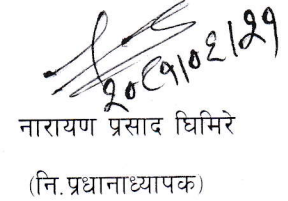 २०८१।०६।२१
नारायण प्रसाद घिमिरे
(नि.प्रधानाध्यापक)